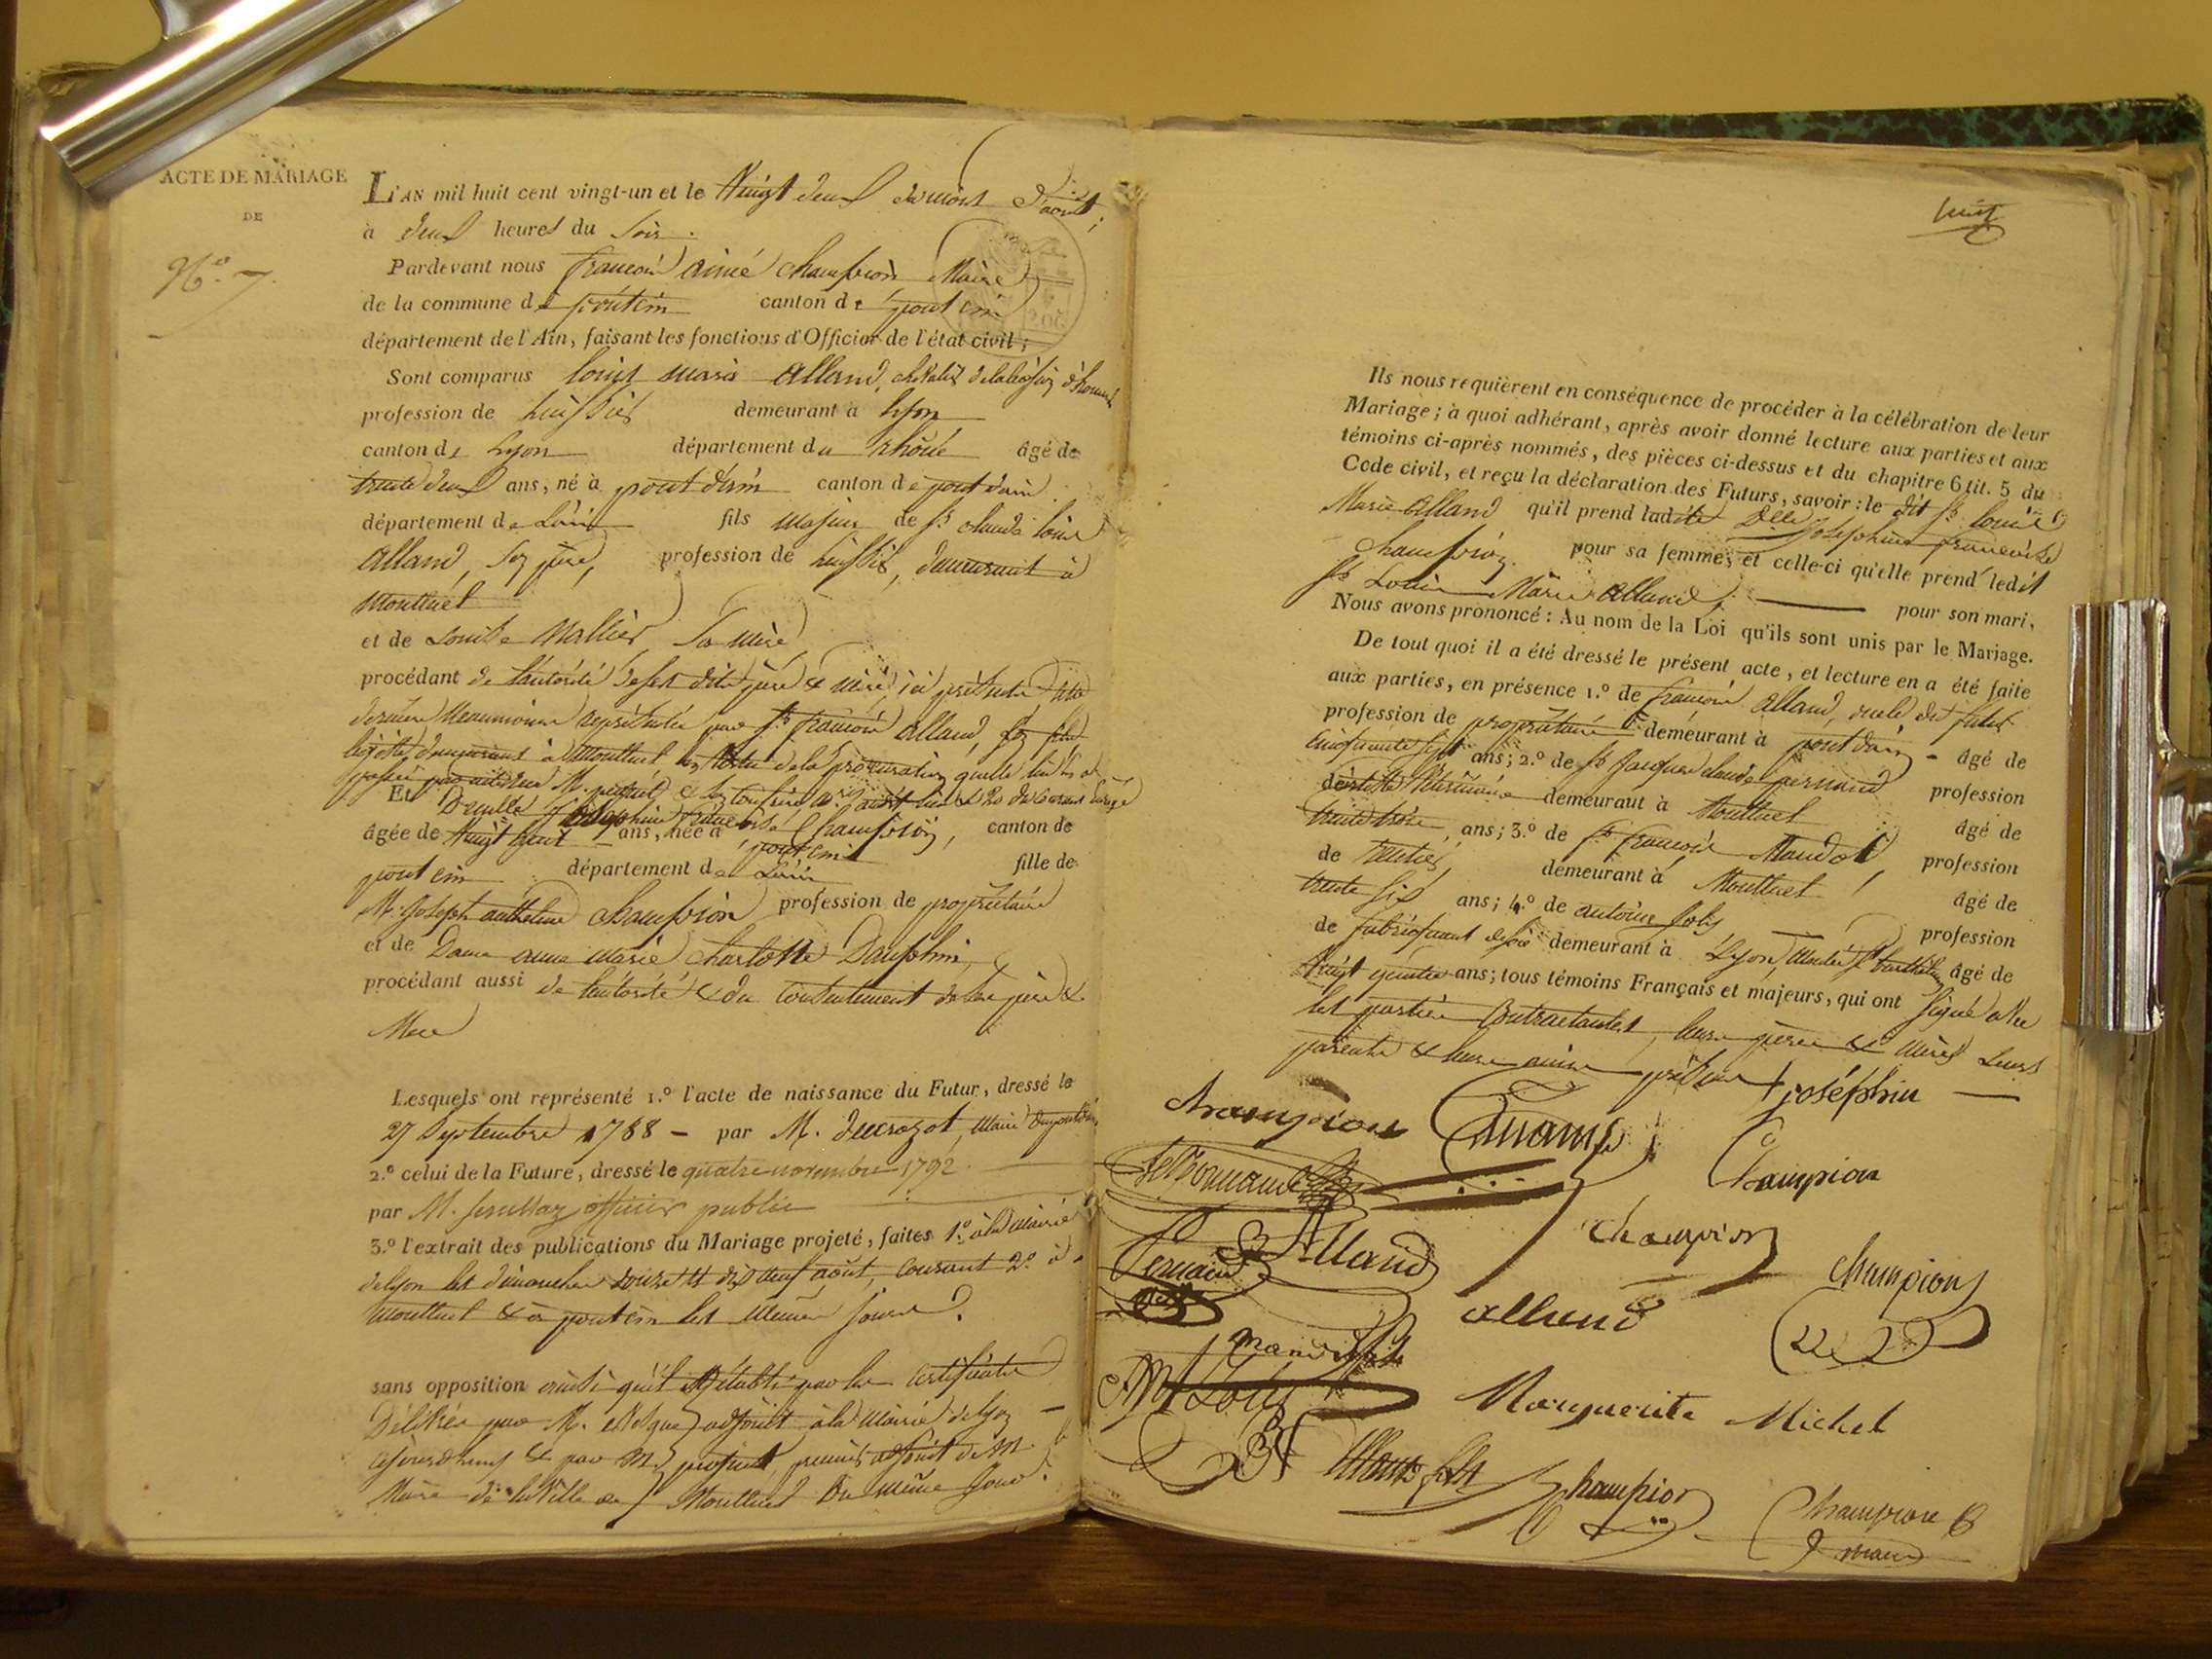 ACTE DE MARIAGE
DE
N.º 7.
L'AN mil huit cent vingt-un et le vingt deux du mois d'aout,
à deux heures du soir.
Pardevant nous françois aimé champion Maire
de la commune de pontcin canton de pont cin
département de l'Ain, faisant les fonctions d'Officier de l'état civil;
Sont comparus louis marie alland, chevalier de la légion d'honneur
profession de huissier demeurant à lyon
canton de Lyon département du rhône âgé de
trente deux ans, né à pont d'ain canton de pont d'ain
département de L'ain fils majeur de sr claude louis
alland, son père, profession de huissier, demeurant à
montluel
et de Louise Mallier, sa mère
procédant de l'autorité de ses dits père & mère, ici présents,
dernière néanmoins représentée par sr françois alland, son fils
demeurant à montluel en vertu de la procuration qu'elle lui en a
passée M. & son confrère
Et Demlle Joséphine françoise Champion,
âgée de vingt huit ans, née à pont cin canton de
pont cin département de L'ain fille de
M. Joseph anthelme champion profession de propriétaire
et de Dame anne marie charlotte Dauphin,
procédant aussi de l'autorité & du consentement de ses père &
Mere
Lesquels ont représenté 1.º l'acte de naissance du Futur, dressé le
27 Septembre 1788 - par M. ducrozot, maire
2.º celui de la Future, dressé le quatre novembre 1792.
par M. officier public
3.º l'extrait des publications du Mariage projeté, faites 1.º à la mairie
de lyon les dimanches douze & dix neuf août, courant 2.º à
montluel & à pontcin les mêmes jours.
sans opposition ainsi qu'il est établi par les certificats
Délivrés par M. adjoint à la mairie de lyon
& par M. premier adjoint de M.
Maire de la Ville de Montluel du même jour.
huit
Ils nous requièrent en conséquence de procéder à la célébration de leur
Mariage; à quoi adhérant, après avoir donné lecture aux parties et aux
témoins ci-après nommés, des pièces ci-dessus et du chapitre 6 tit. 5 du
Code civil, et reçu la déclaration des Futurs, savoir: le dit sr louis
Marie alland qu'il prend ladite Dlle Joséphine françoise
champion pour sa femme, et celle-ci qu'elle prend ledit
sr Louis Marie alland, pour son mari,
Nous avons prononcé: Au nom de la Loi qu'ils sont unis par le Mariage.
De tout quoi il a été dressé le présent acte, et lecture en a été faite
aux parties, en présence 1.º de françois alland, oncle du futur
profession de propriétaire demeurant à pont d'ain - âgé de
cinquante sept ans; 2.º de sr Jacques claude germain profession
d'artiste vétérinaire demeurant à Montluel âgé de
trente trois ans; 3.º de sr françois Mandot, profession
de rentier, demeurant à Montluel, âgé de
trente six ans; 4.º de antoine Joly profession
de fabriquant de soie demeurant à Lyon, montée st barthélemy âgé de
vingt quatre ans; tous témoins Français et majeurs, qui ont signé avec
les parties contractantes, leurs pères & mères leurs
parents & leurs amis présens
joséphine
champion
Champion
Alland
champion
Champion
Germain
alland
Marguerite Michel
alland fils
Champion
Champion
maire